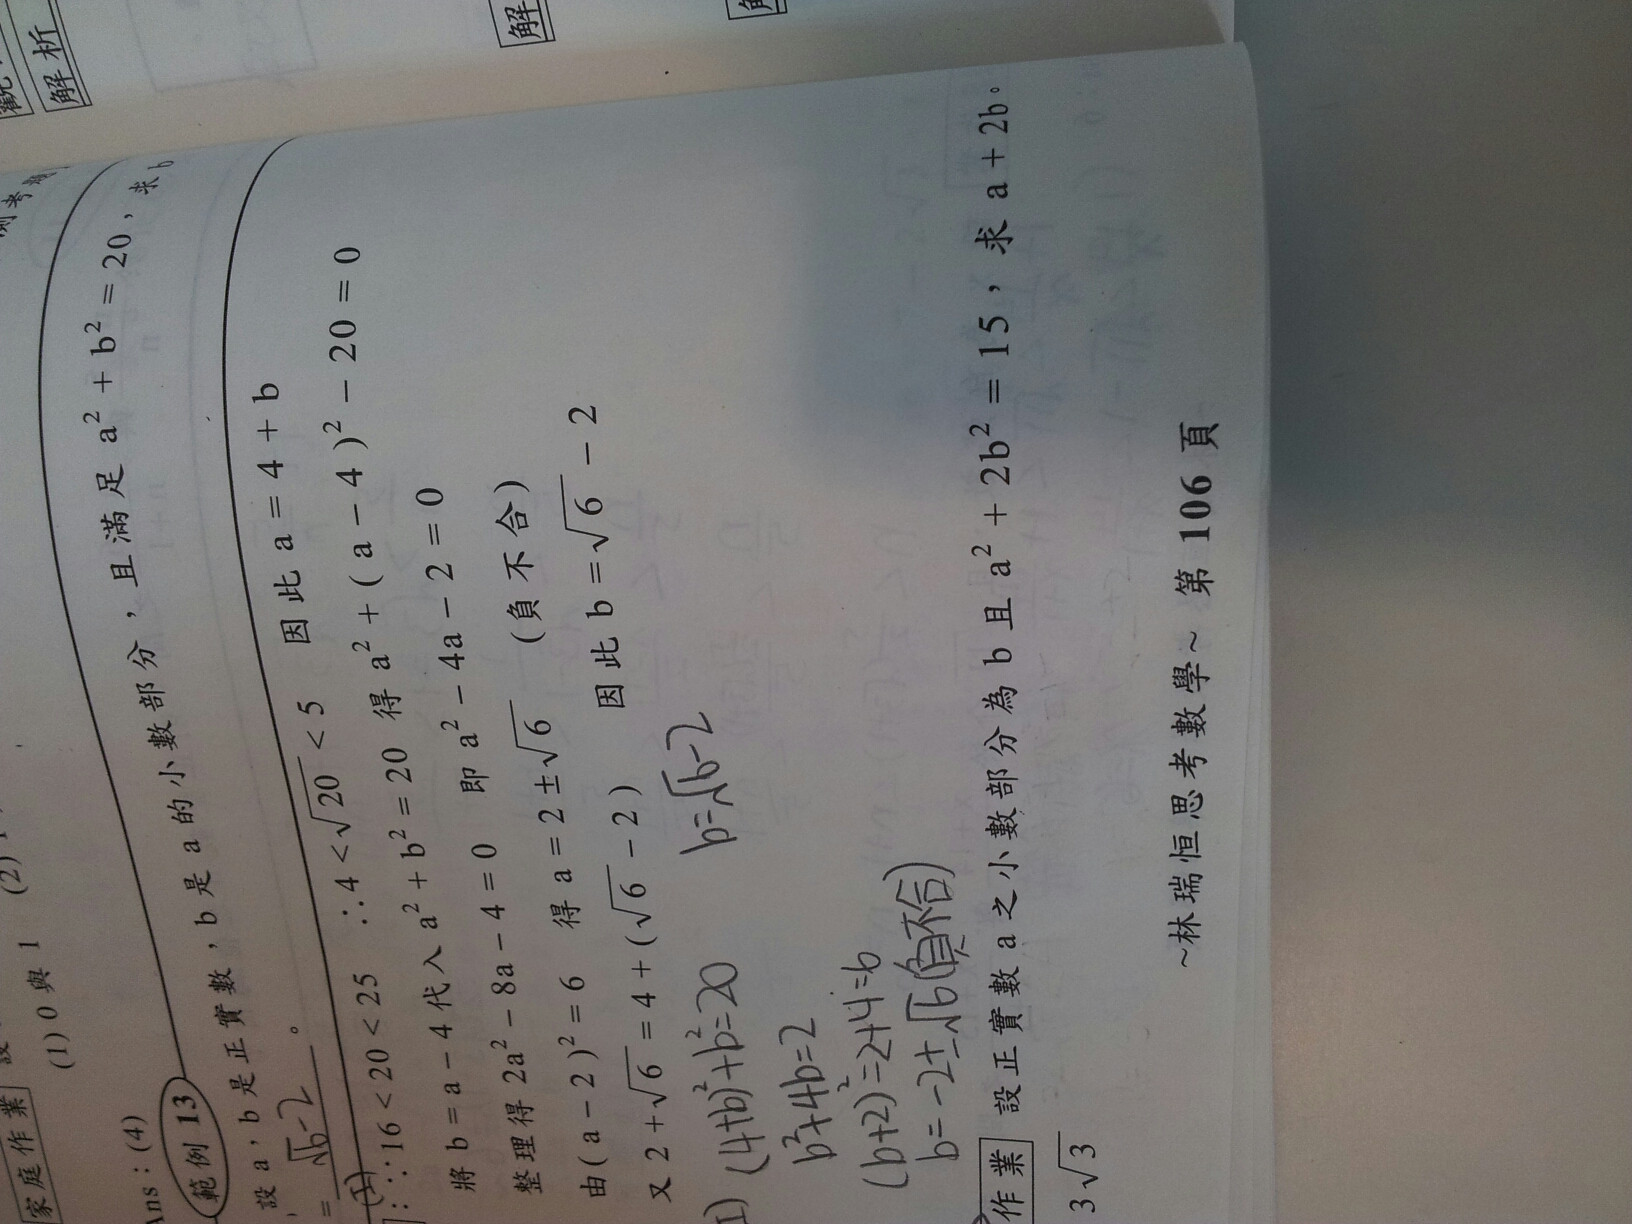 觀
解析
解
測考題
(2)
(1) 0 與 1
家庭作業
Ans：(4)
範例 13
設 a，b 是正實數，b 是 a 的小數部分，且滿足 a² + b² = 20，求 b
= √6-2 。
(I)
∵16 < 20 < 25 ∴4 < √20 < 5 因此 a = 4 + b
將 b = a − 4 代入 a² + b² = 20 得 a² + ( a − 4 )² − 20 = 0
整理得 2a² − 8a − 4 = 0 即 a² − 4a − 2 = 0
由( a − 2 )² = 6 得 a = 2 ± √6 (負不合)
又 2 + √6 = 4 + ( √6 − 2 ) 因此 b = √6 − 2
(4+b)²+b²=20 b=√6-2
b²+4b=2
(b+2)²=2+4=6
b=-2±√6(負不合)
作業 設正實數 a 之小數部分為 b 且 a² + 2b² = 15，求 a + 2b。
3√3
~林瑞恒思考數學~ 第 106 頁